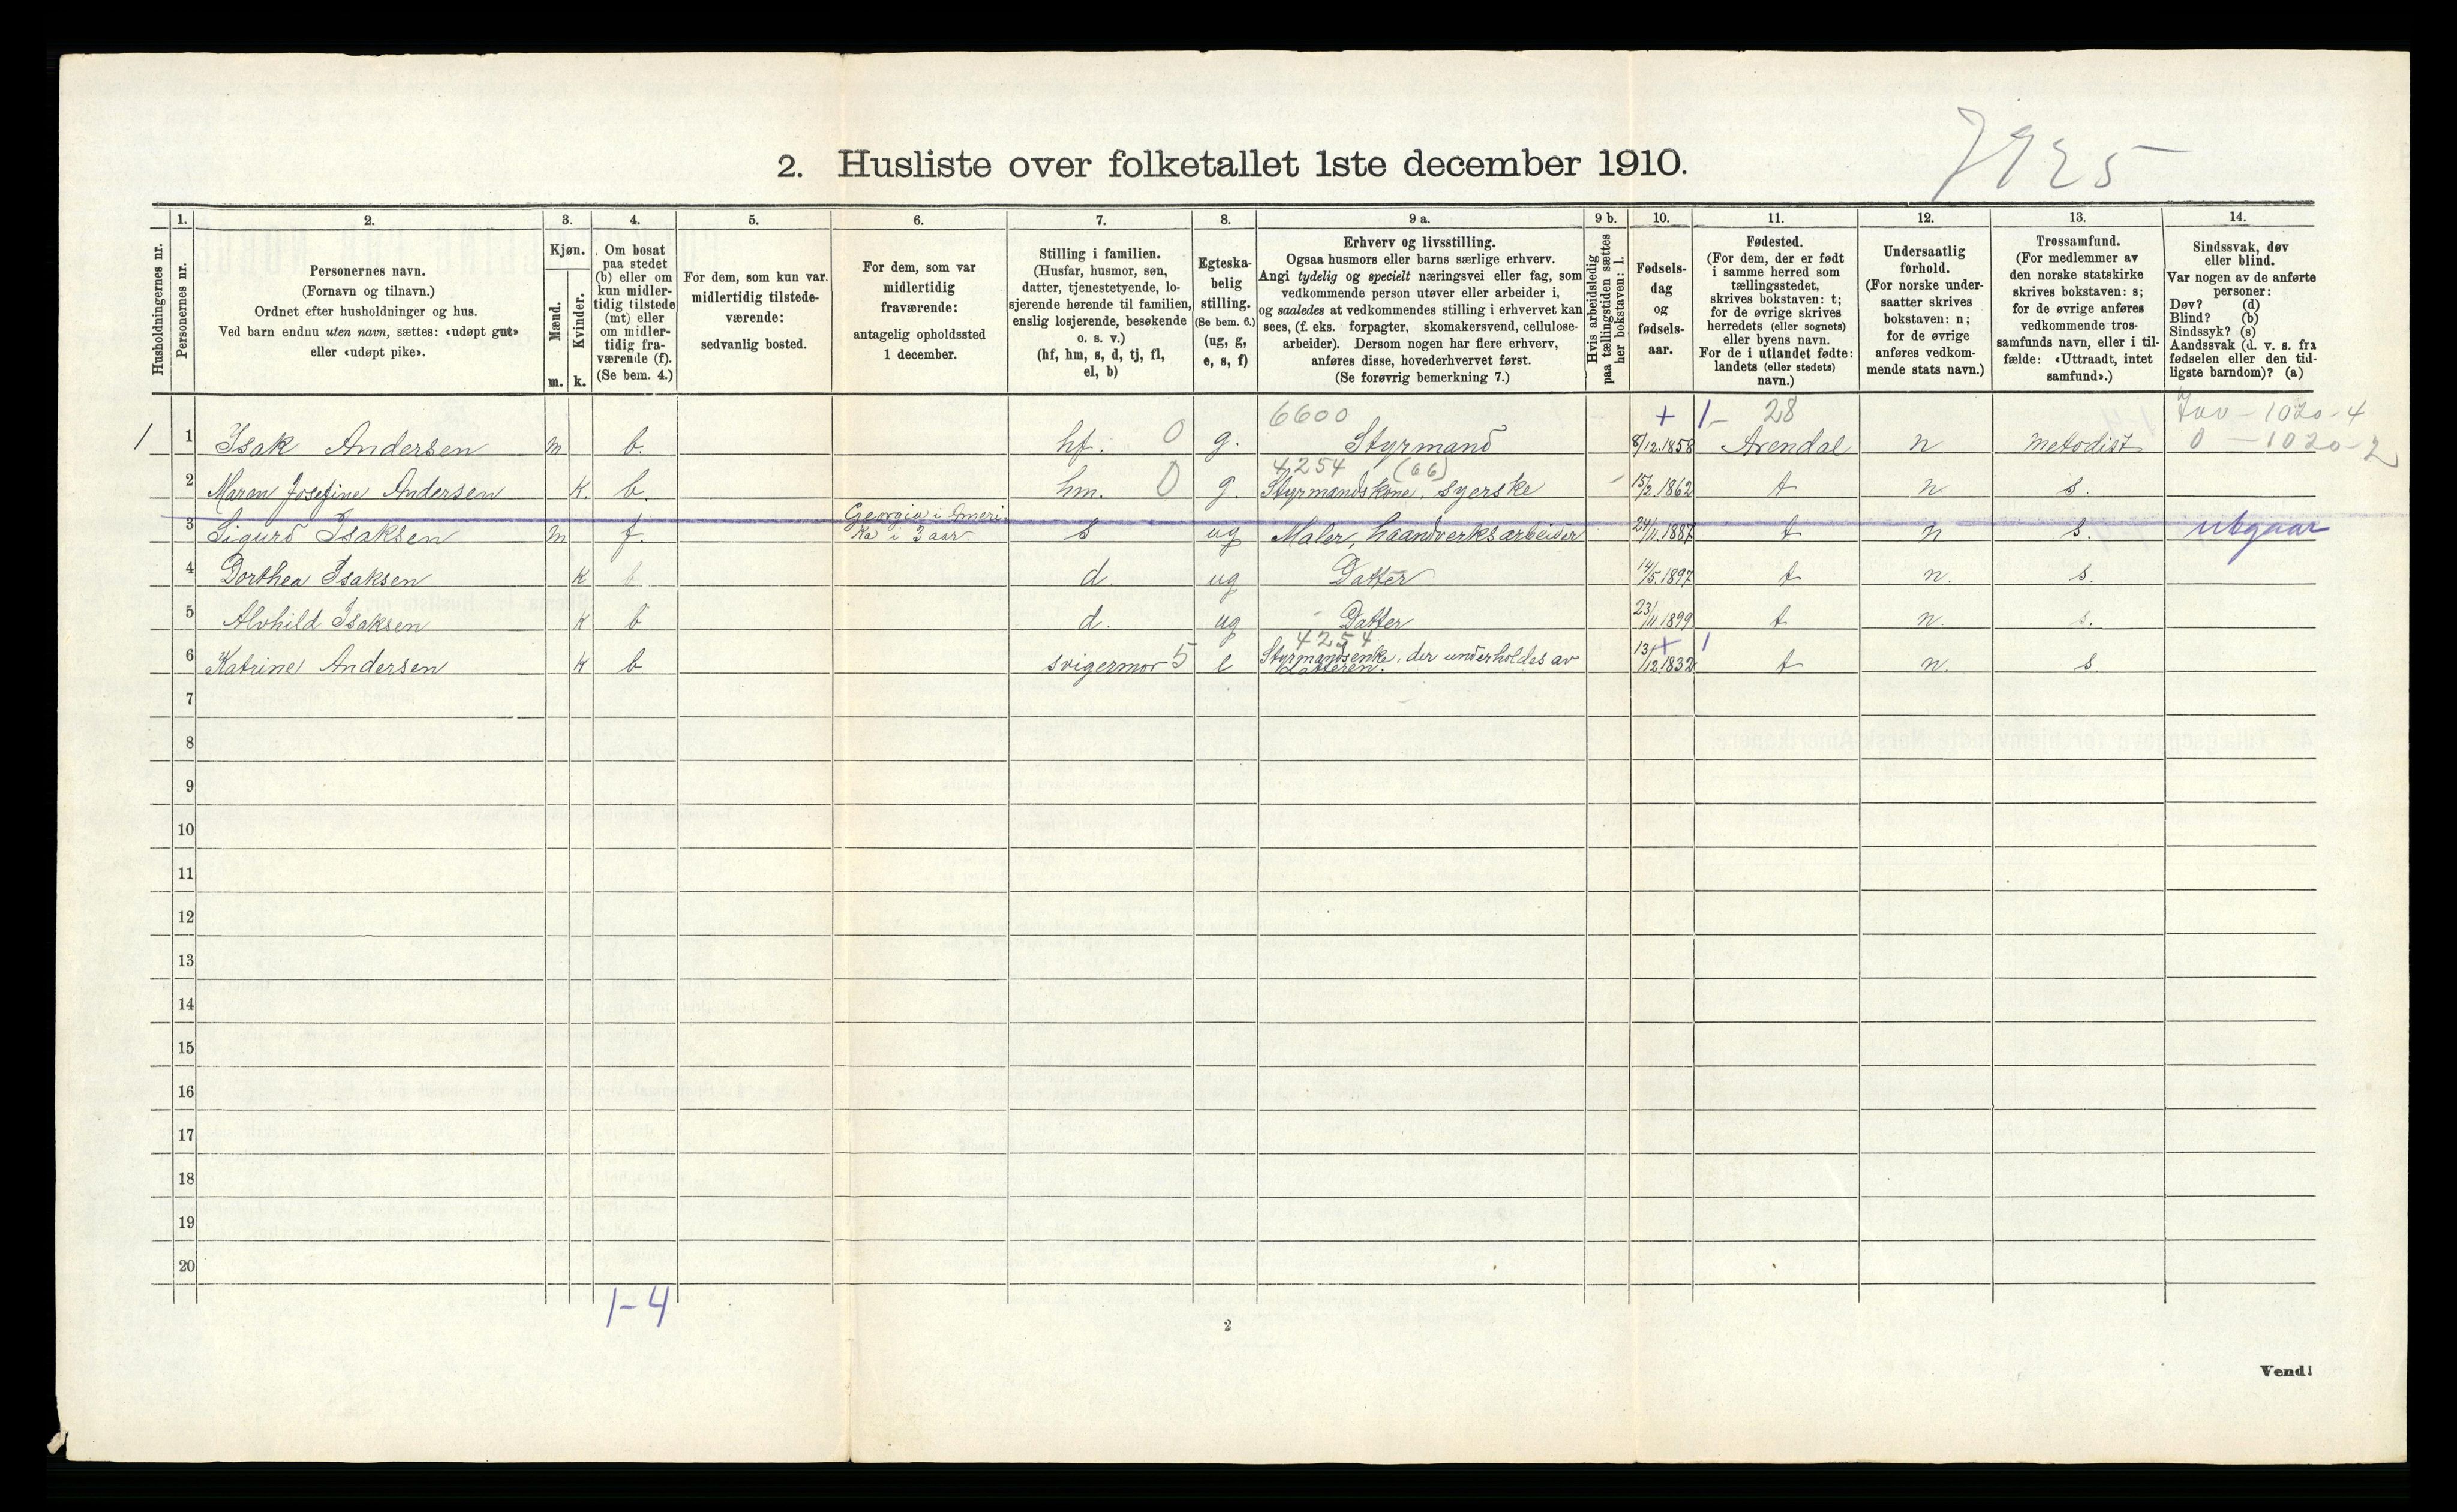 7925
2. Husliste over folketallet 1ste december 1910.
Husholdningernes nr.
1.
Personernes nr.
2.
Personernes navn.
(Fornavn og tilnavn.)
Ordnet efter husholdninger og hus.
Ved barn endnu uten navn, sættes: «udøpt gut»
eller «udøpt pike».
3.
Kjøn.
Mænd.
Kvinder.
m. k.
4.
Om bosat
paa stedet
(b) eller om
kun midler-
tidig tilstede
(mt) eller
om midler-
tidig fra-
værende (f).
(Se bem. 4.)
5.
For dem, som kun var
midlertidig tilstede-
værende:
sedvanlig bosted.
6.
For dem, som var
midlertidig
fraværende:
antagelig opholdssted
1 december.
7.
Stilling i familien.
(Husfar, husmor, søn,
datter, tjenestetyende, lo-
sjerende hørende til familien,
enslig losjerende, besøkende
o. s. v.)
(hf, hm, s, d, tj, fl,
el, b)
8.
Egteska-
belig
stilling.
(Se bem. 6.)
(ug, g,
e, s, f)
9 a.
Erhverv og livsstilling.
Ogsaa husmors eller barns særlige erhverv.
Angi tydelig og specielt næringsvei eller fag, som
vedkommende person utøver eller arbeider i,
og saaledes at vedkommendes stilling i erhvervet kan
sees, (f. eks. forpagter, skomakersvend, cellulose-
arbeider). Dersom nogen har flere erhverv,
anføres disse, hovederhvervet først.
(Se forøvrig bemerkning 7.)
9 b.
Hvis arbeidsledig
paa tællingstiden sættes
her bokstaven: l.
10.
Fødsels-
dag
og
fødsels-
aar.
11.
Fødested.
(For dem, der er født
i samme herred som
tællingsstedet,
skrives bokstaven: t;
for de øvrige skrives
herredets (eller sognets)
eller byens navn.
For de i utlandet fødte:
landets (eller stedets)
navn.)
12.
Undersaatlig
forhold.
(For norske under-
saatter skrives
bokstaven: n;
for de øvrige
anføres vedkom-
mende stats navn.)
13.
Trossamfund.
(For medlemmer av
den norske statskirke
skrives bokstaven: s;
for de øvrige anføres
vedkommende tros-
samfunds navn, eller i til-
fælde: «Uttraadt, intet
samfund».)
14.
Sindssvak, døv
eller blind.
Var nogen av de anførte
personer:
Døv? (d)
Blind? (b)
Sindssyk? (s)
Aandssvak (d. v. s. fra
fødselen eller den tid-
ligste barndom)? (a)
6600 + 1- 28 1020-4
1 1 Isak Andersen m b. hf. 0 g. Styrmand 8/12.1858 Arendal n metodist 0 - 1020-2
4254 (66)
2 Maren Josefine Andersen K. b. hm. 0 g. Styrmandskone, syerske 15/2.1862 t n s.
Georgia i Ameri-
3 Sigurd Isaksen m f. ka i 3 aar s ug Maler, haandverksarbeider 24/11.1887 t n s. utgaar
4 Dorthea Isaksen K b d ug Datter 14/5.1897 t n. s.
5 Alvhild Isaksen K b d. ug Datter 23/11.1899 t n. s.
4254 + 1
6 Katrine Andersen K b svigermor 5 e Styrmandsenke, der underholdes av datteren. 13/12.1832 t n. s
7
8
9
10
11
12
13
14
15
16
17
18
19
20
1-4
2
Vend!